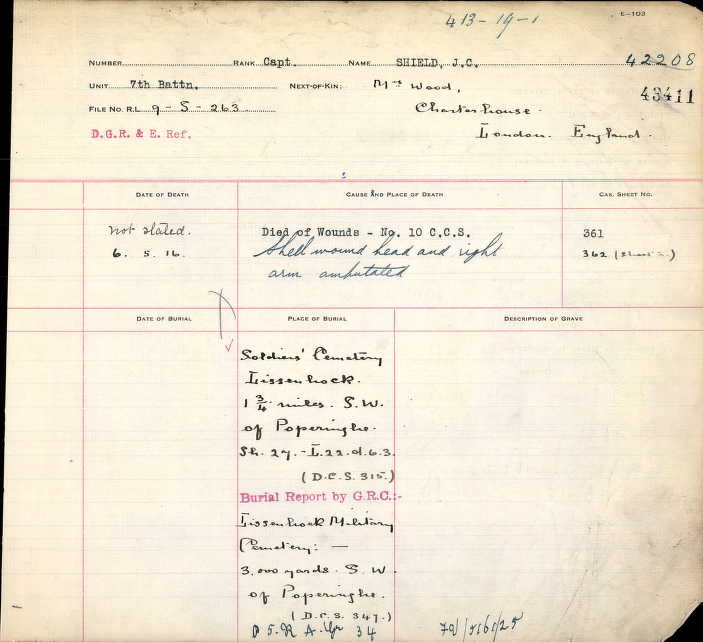 413-19-1
E-103
NUMBER RANK Capt. NAME SHIELD, J.C. 42208
UNIT 7th Battn. NEXT-OF-KIN: Mrs Wood, 43411
FILE NO. R.L. 9-S-263 Charterhouse.
D.G.R. & E. Ref. London. England.
DATE OF DEATH CAUSE AND PLACE OF DEATH CAS. SHEET NO.
not stated. Died of Wounds - No. 10 C.C.S. 361
6. 5. 16. Shell wound head and right 362
arm amputated
DATE OF BURIAL PLACE OF BURIAL DESCRIPTION OF GRAVE
Soldiers' Cemetery
Lissenhock.
1 3/4 miles. S.W.
of Poperinghe.
Sh. 27.-L.22.d.6.3.
(D.C.S. 315.)
Burial Report by G.R.C.:-
Lissenhock Military
Cemetery: —
3,000 yards. S.W.
of Poperinghe.
(D.C.S. 347.)
34